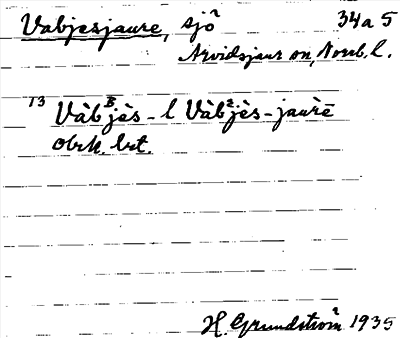 Vabjesjaure, sjö 34a5
Arvidsjaur sn, Norrb. l.
T3 Vàbᴮjès- l Vàb²jès-jaùrē
obek. bet.
H. Grundström 1935